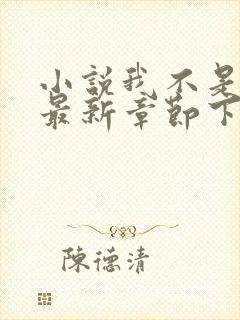 小説我不是
最新章節下
陳德清